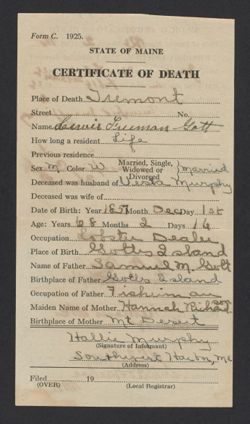 Form C. 1925.
STATE OF MAINE
CERTIFICATE OF DEATH
Place of Death Tremont
Street No.
Name Lewis Freeman Gott
How long a resident Life
Previous residence
Sex M. Color W Married, Single, Widowed or Divorced } Married
Deceased was husband of Vesta Murphy
Deceased was wife of
Date of Birth: Year 1857 Month Dec Day 1st
Age: Years 68 Months 2 Days 16
Occupation Lobster Dealer
Place of Birth Gotts Island
Name of Father Samuel M. Gott
Birthplace of Father Gotts Island
Occupation of Father Fisherman
Maiden Name of Mother Hannah
Birthplace of Mother Mt Desert
Hallie Murphy
(Signature of Informant)
Southwest Harbor, Me
(Address)
Filed 19
(OVER) (Local Registrar)